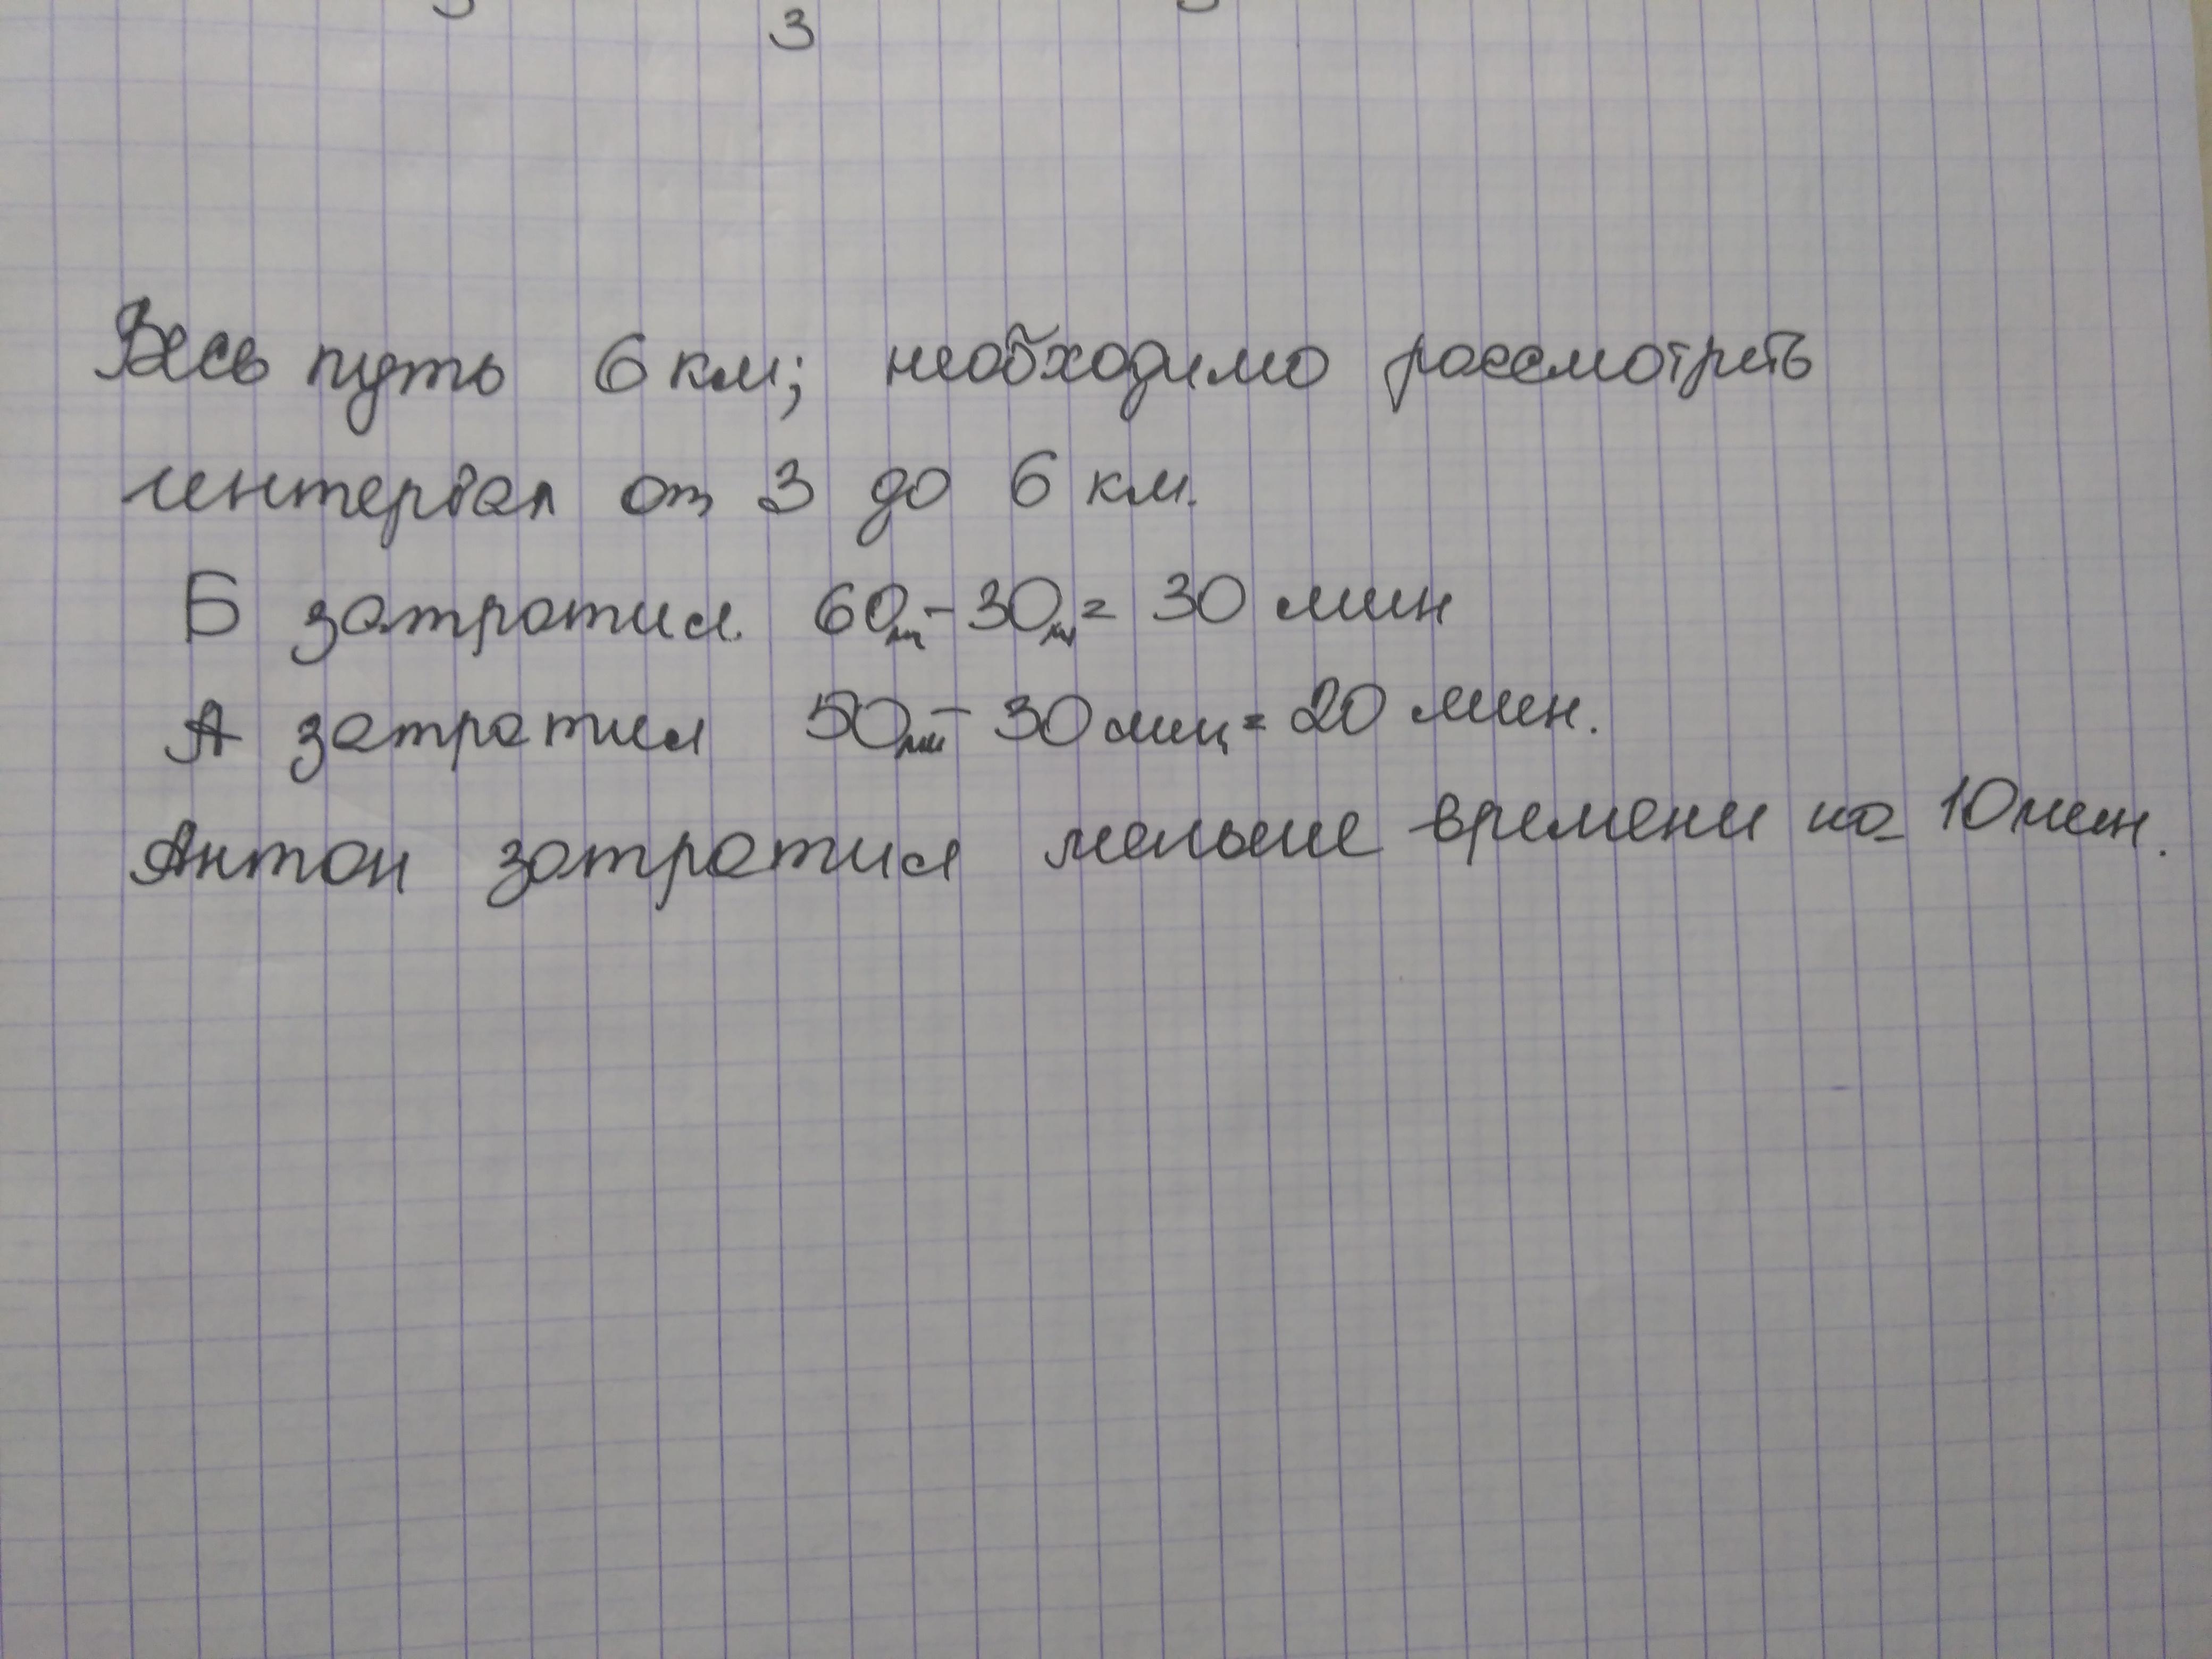 3
Весь путь 6 км; необходимо рассмотреть
интервал от 3 до 6 км.
Б затратил 60м - 30м = 30 мин
А затратил 50ми - 30 мин = 20 мин.
Антон затратил меньше времени на 10 мин.